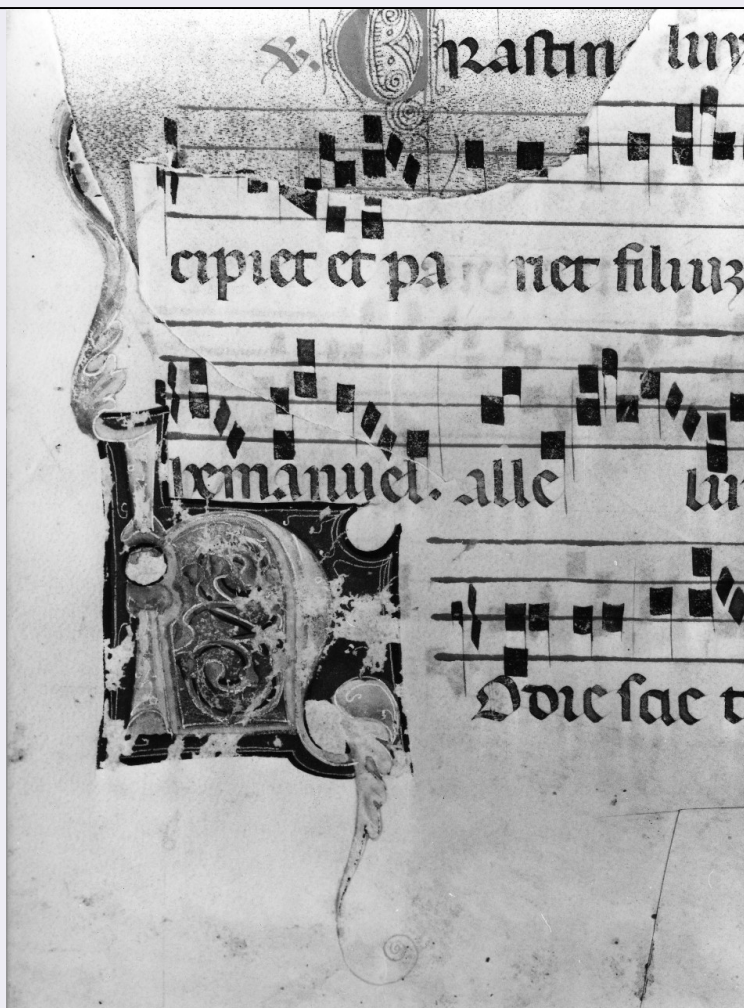 ℣. Crastin luy
cipiet et pa riet filiuz
hemanuel. alle lu
Hodie scie t